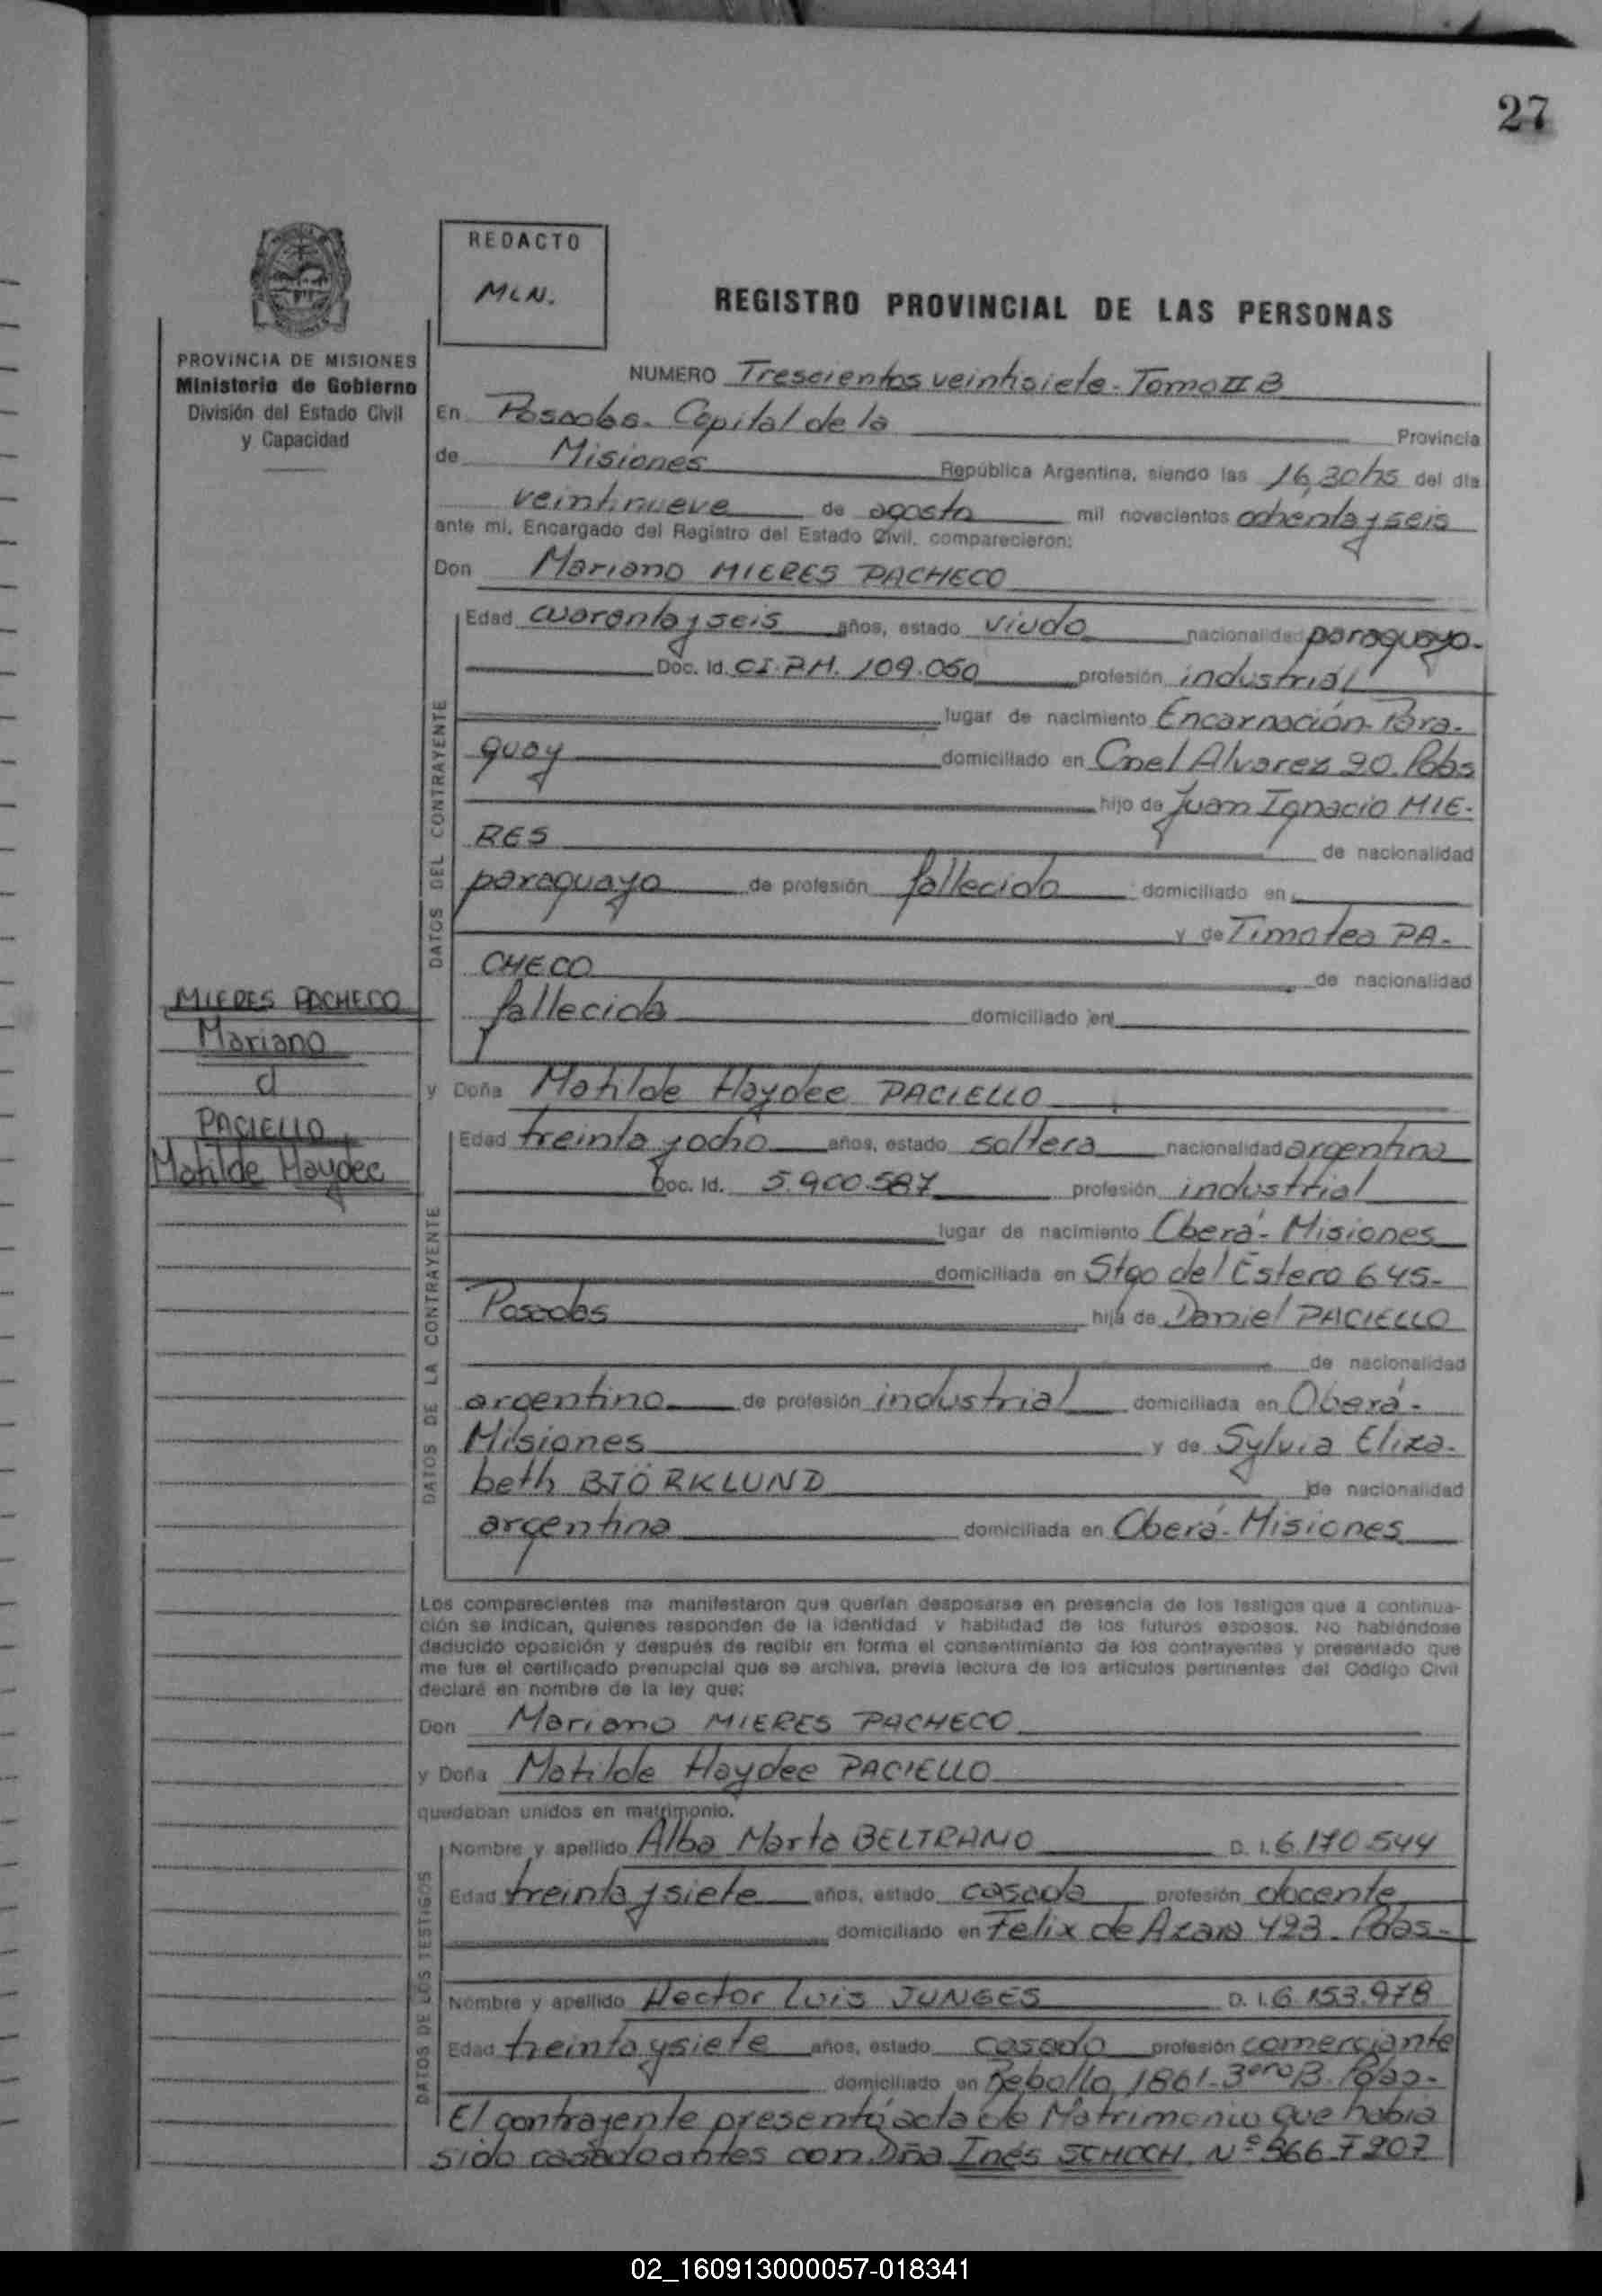 27
REDACTO
MLN.
REGISTRO PROVINCIAL DE LAS PERSONAS
PROVINCIA DE MISIONES
Ministerio de Gobierno
División del Estado Civil
y Capacidad
NUMERO Trescientos veintisiete. Tomo II B
En Posadas. Capital de la Provincia
de Misiones República Argentina, siendo las 16,30 hs del día
veintinueve de agosto mil novecientos ochenta y seis
ante mí, Encargado del Registro del Estado Civil, comparecieron:
Don Mariano MIERES PACHECO
DATOS DEL CONTRAYENTE
Edad cuarenta y seis años, estado viudo nacionalidad paraguayo-
Doc. Id. CI. P.M. 109.050 profesión industrial
lugar de nacimiento Encarnación- Para-
guay domiciliado en Cnel Alvarez 90. Pdas
hijo de Juan Ignacio MIE-
RES de nacionalidad
paraguayo de profesión fallecido domiciliado en
y de Timotea PA-
CHECO de nacionalidad
fallecida domiciliado en
MIERES PACHECO
Mariano
PACIELLO
Matilde Haydee
y Doña Matilde Haydee PACIELLO
DATOS DE LA CONTRAYENTE
Edad treinta y ocho años, estado soltera nacionalidad argentina
Doc. Id. 5.900.587 profesión industrial
lugar de nacimiento Oberá- Misiones
domiciliada en Stgo del Estero 645-
Posadas hija de Daniel PACIELLO
de nacionalidad
argentino de profesión industrial domiciliada en Oberá-
Misiones y de Sylvia Eliza-
beth BJÖRKLUND de nacionalidad
argentina domiciliada en Oberá- Misiones
Los comparecientes me manifestaron que querían desposarse en presencia de los testigos que a continua-
ción se indican, quienes responden de la identidad y habilidad de los futuros esposos. No habiéndose
deducido oposición y después de recibir en forma el consentimiento de los contrayentes y presentado que
me fue el certificado prenupcial que se archiva, previa lectura de los artículos pertinentes del Código Civil
declaré en nombre de la ley que:
Don Mariano MIERES PACHECO
y Doña Matilde Haydee PACIELLO
quedaban unidos en matrimonio.
DATOS DE LOS TESTIGOS
Nombre y apellido Alba Marta BELTRAMO D. I. 6.170.544
Edad treinta y siete años, estado casada profesión docente
domiciliado en Felix de Azara 493. Pdas-
Nombre y apellido Hector Luis JUNGES D. I. 6.153.978
Edad treinta y siete años, estado casado profesión comerciante
domiciliado en Rebollo 1861-3ero B. Pdas-
El contrayente presentó acta de Matrimonio que había
sido casado antes con Dña Inés SCHOCH, Nº 366 F 207
02_160913000057-018341